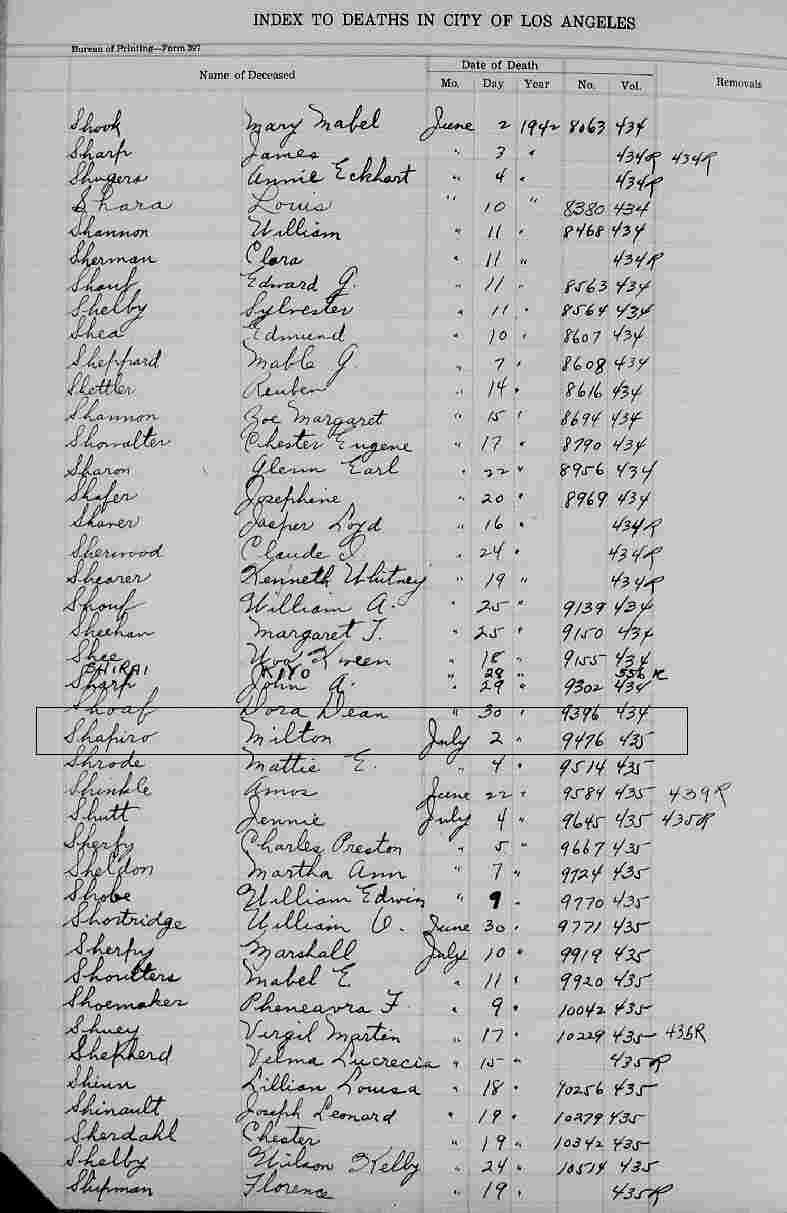 INDEX TO DEATHS IN CITY OF LOS ANGELES
Bureau of Printing—Form 397
Name of Deceased Date of Death
Mo. Day Year No. Vol. Removals
Shook Mary Mabel June 2 1942 8063 434
Sharp James " 3 " 434R 434R
Shugers Annie Eckhart " 4 " 434R
Shara Louis " 10 " 8380 434
Shannon William " 11 " 8468 434
Sherman Clara " 11 " 434R
Shouf Edward G. " 11 " 8563 434
Shelby Sylvester " 11 " 8564 434
Shea Edmund " 10 " 8607 434
Sheppard Mable G. " 7 " 8608 434
Shettler Reuben " 14 " 8616 434
Shannon Zoe Margaret " 15 " 8694 434
Showalter Chester Eugene " 17 " 8790 434
Sharon Glenn Earl " 22 " 8956 434
Shafer Josephine " 20 " 8969 434
Shaner Jasper Loyd " 16 " 434R
Sherwood Claude D. " 24 " 434R
Shearer Kenneth Whitney " 19 " 434R
Shouf William A. " 25 " 9139 434
Sheehan Margaret T. " 25 " 9150 434
Shee Woo Kween " 18 " 9155 434
SHIRAI KIYO " 28 " 556 R
Sharp John A. " 29 " 9302 434
Shoaf Dora Dean " 30 " 9396 434
Shapiro Milton July 2 " 9476 435
Shrode Mattie E. " 4 " 9514 435
Shinkle Amos June 22 " 9584 435 439R
Shutt Jennie July 4 " 9645 435 435R
Sherfy Charles Preston " 5 " 9667 435
Sheldon Martha Ann " 7 " 9724 435
Shobe William Edwin " 9 " 9770 435
Shortridge William O. June 30 " 9771 435
Sherfy Marshall July 10 " 9919 435
Shoulters Mabel E " 11 " 9920 435
Shoemaker Pheneavra F. " 9 " 10042 435
Shuey Virgil Martin " 17 " 10229 435 435R
Shepherd Velma Lucrecia " 15 " 435R
Shinn Lillian Louisa " 18 " 10256 435
Shinault Joseph Leonard " 19 " 10279 435
Sherdahl Chester " 19 " 10342 435
Shelby Wilson Kelby " 24 " 10514 435
Shipman Florence " 19 " 435R